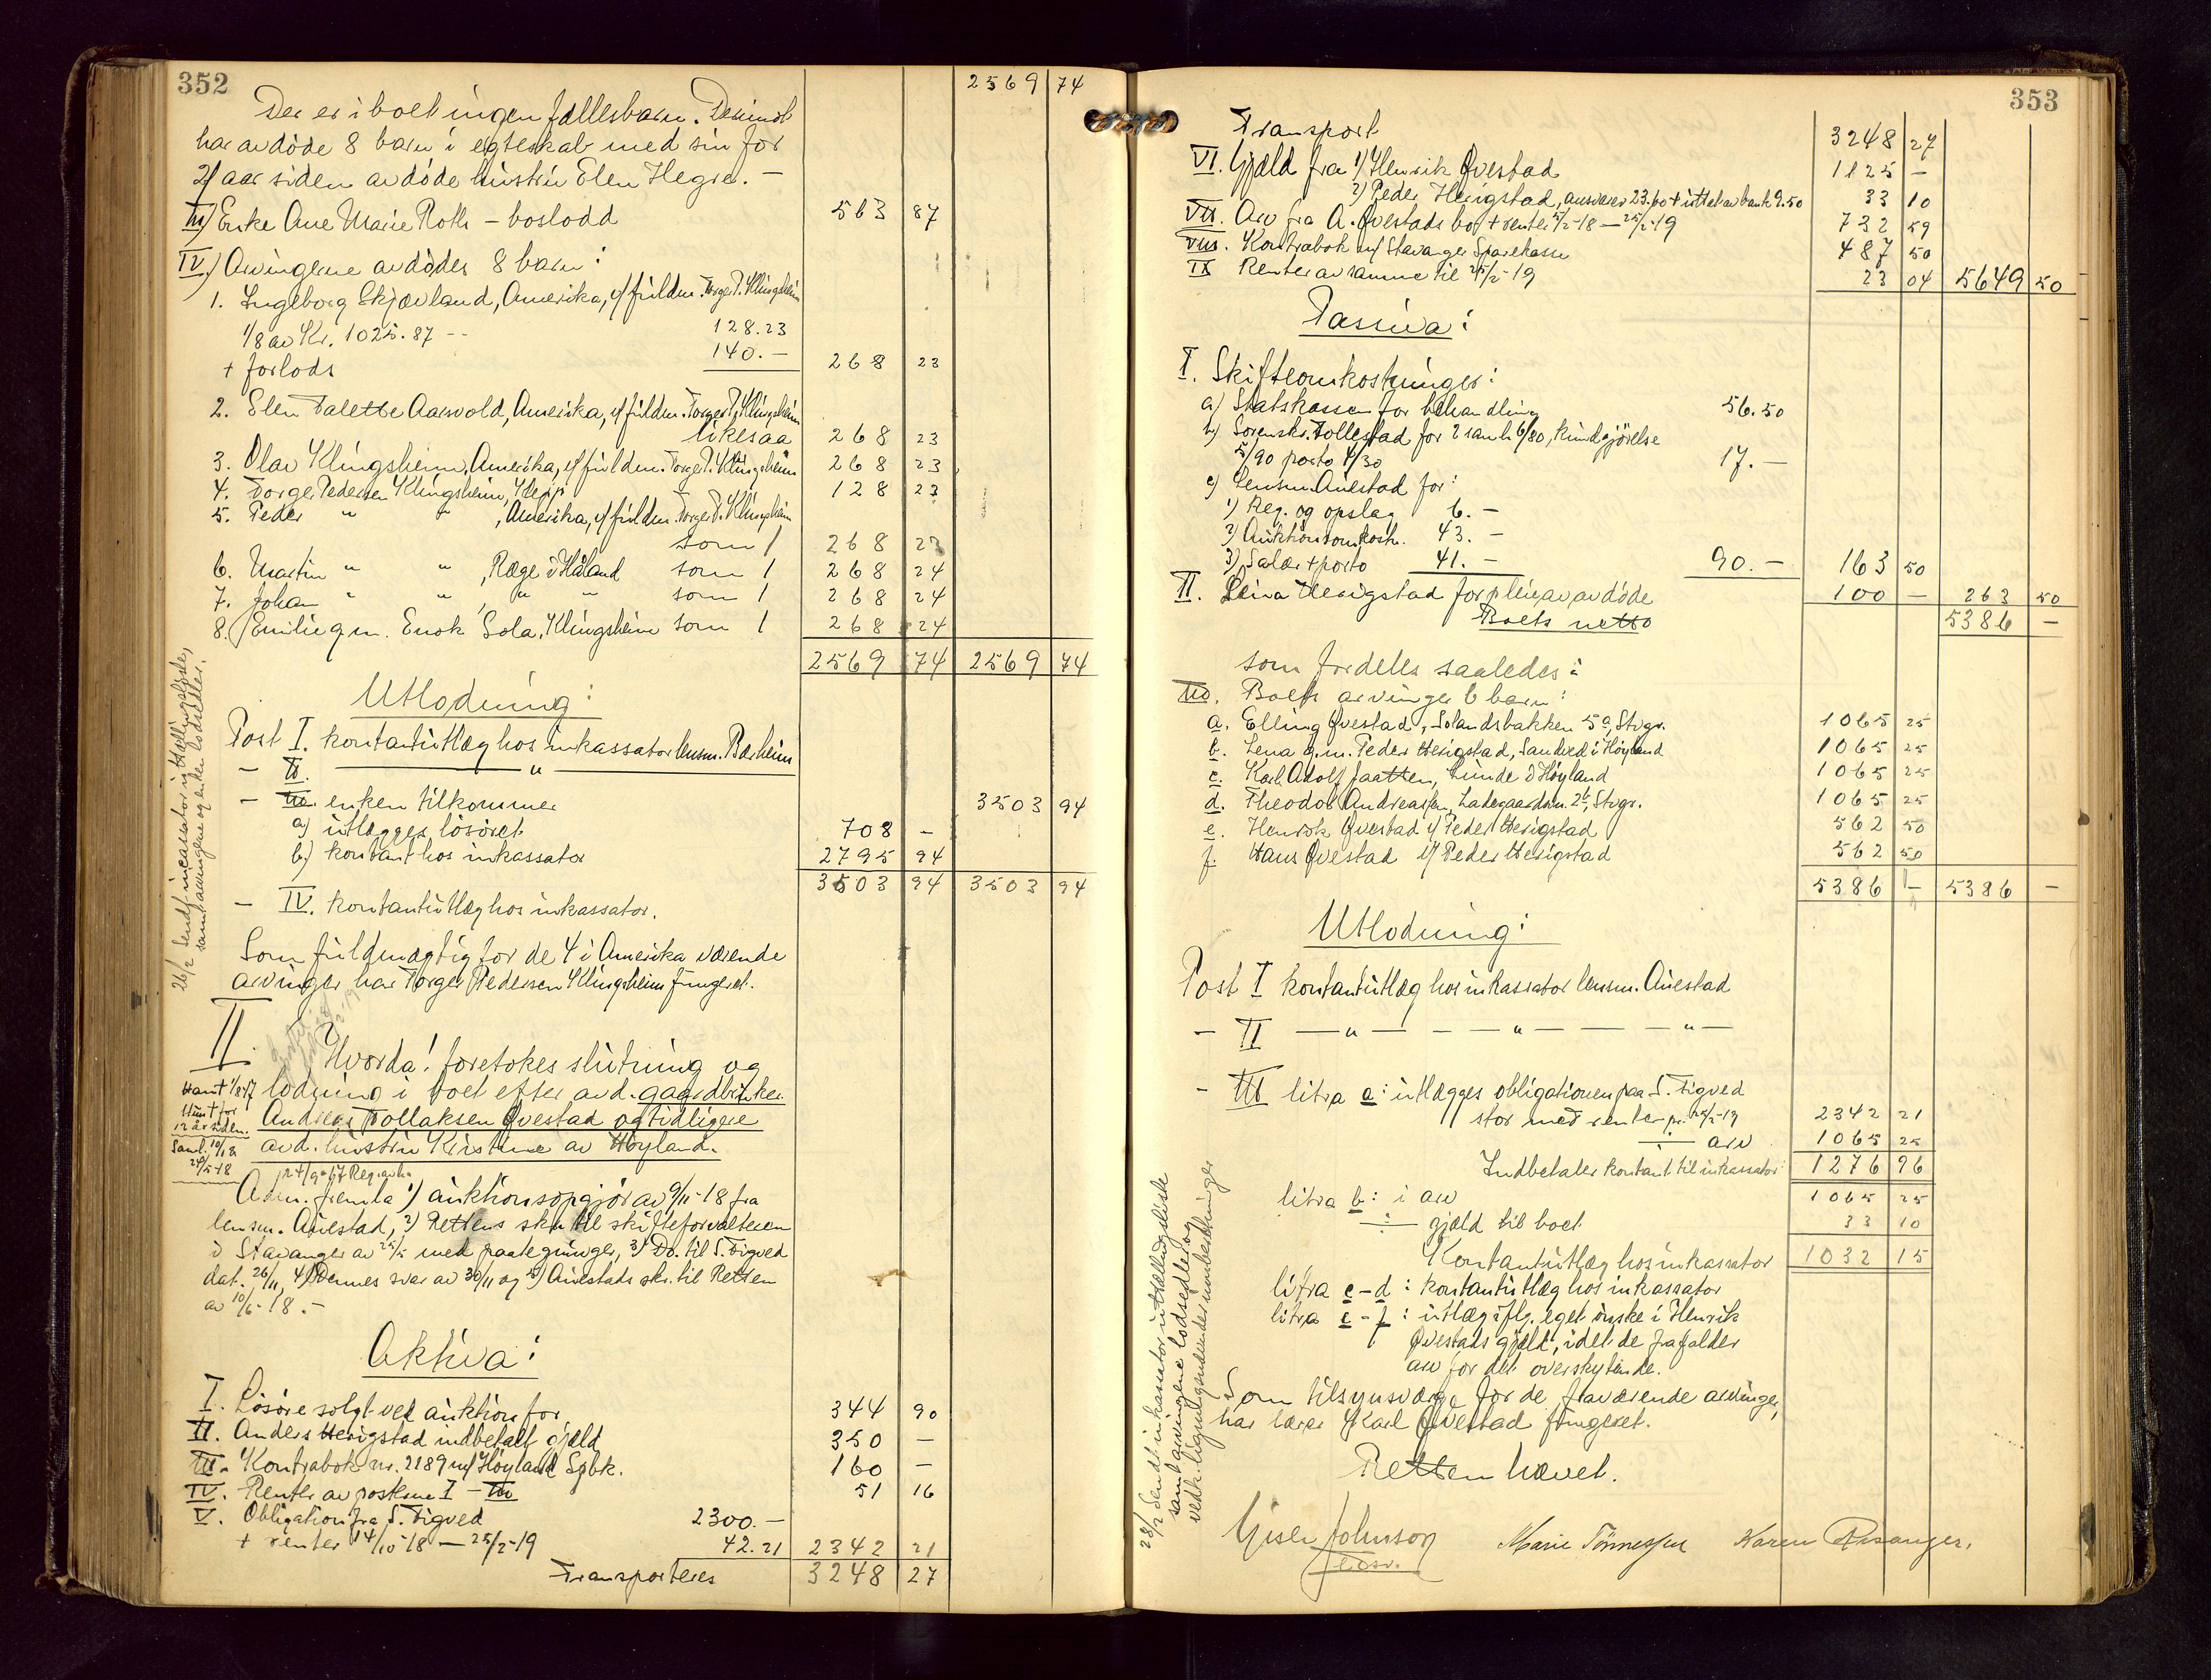 352
2569 74
Der er i boet ingen fællesbarn. Derimot
har avdöde 8 barn i egteskab med sin for
21 aar siden avdöde hustru Elen Hegre. —
III) Enke Ane Marie Roth – boslodd 563 87
IV) Arvingerne avdödes 8 barn:
1. Ingeborg Skjævland, Amerika, v/ fuldm. Torger P. Klingsheim
1/8 av Kr. 1025.87 -- 128.23
+ forlods 140.— 268 23
2. Elen Talette Aarsvold, Amerika, v/ fuldm. Torger P. Klingsheim
likesaa 268 23
3. Olav Klingsheim, Amerika, v/ fuldm. Torger P. Klingsheim 268 23
4. Torger Pedersen Klingsheim, Klepp 128 23
5. Peder " " , Amerika, v/ fuldm. Torger P. Klingsheim
som 1 268 23
6. Martin " " , Ræge i Håland som 1 268 24
7. Johan " " , " " som 1 268 24
8. Emilie g.m. Enok Sola, Klingsheim som 1 268 24
2569 74 2569 74
Utlodning:
Post I. kontantutlæg hos inkassator lensm. Bærheim
— II. — " —
— III. enken tilkommer 3503 94
a) utlægges lösöret 708 —
b) kontant hos inkassator 2795 94
3503 94 3503 94
— IV. kontantutlæg hos inkassator.
Som fuldmægtig for de 4 i Amerika værende
arvinger har Torger Pedersen Klingsheim fungeret.
26/2 Sendt incassator uttællingsliste,
samt arvingerne og enken lodsedler.
II.
Hvorda! foretokes slutning og
lodning i boet efter avd. gaardbruker
Andreas Tollaksen Qvestad og tidligere
avd. hustru Kirstine av Höyland.
Ham † 1/8-17
Hun † for
12 år siden.
Saml. 10/1 18
24/5-18
jr. † /9-67 Reg. anh.
Adm. fremla 1) auktionsopgjör av 9/11-18 fra
lensm. Auestad, 2) Rettens skr. til skifteforvalteren
i Stavanger av 25/5 med paategninger, 3) Do. til S. Figved
dat. 26/11, 4) Dennes svar av 30/11 og 5) Auestads skr. til Retten
av 10/6-18. —
Aktiva:
I. Lösöre solgt ved auktion for 344 90
II. Anders Herigstad indbetalt gjæld 350 —
III. Kontrabok nr. 2189 m/ Höyland Spbk. 160 —
IV. Renter av posterne I – III 51 16
V. Obligation fra S. Figved 2300.—
+ renter 14/10-18 — 25/2-19 42.21 2342 21
Transporteres 3248 27
353
Transport 3248 27
VI. Gjæld fra 1) Henrik Qvestad 1125 —
2) Peder Herigstad, ansvarer 23.60 + uttat av bank 9.50 33 10
VII. Arv fra A. Qvestads bo + renter 5/2-18 — 25/2-19 732 59
VIII. Kontrabok m/ Stavanger Sparekasse 487 50
IX. Renter av samme til 25/2-19 23 04 5649 50
Passiva:
I. Skifteomkostninger:
a) Statskassen for behandling 56.50
b) Sorenskr. Tollestad for 2 saml. 6/80, kundgjörelse
5/90 porto 4/30 17.—
c) Lensm. Auestad for:
1) Reg. og opslag 6.—
2) Auktionsomkostn. 43.—
3) Salær + porto 41.— 90.— 163 50
II. Lena Herigstad for pleie av avdöde 100 — 263 50
Boets netto 5386 —
som fordeles saaledes:
III. Boets arvinger 6 barn:
a. Elling Qvestad, Solandsbakken 5a, Stvgr. 1065 25
b. Lena g.m. Peder Herigstad, Sandved i Höyland 1065 25
c. Karl Adolf Jaatten, Lunde i Höyland 1065 25
d. Theodor Andreassen, Ladegaardsv. 26, Stvgr. 1065 25
e. Henrik Qvestad v/ Peder Herigstad 562 50
f. Hans Qvestad v/ Peder Herigstad 562 50
5386 — 5386 —
Utlodning:
Post I kontantutlæg hos inkassator lensm. Auestad
— II — " — — — " — — — " —
— III litra a: utlægges obligationen paa S. Figved
stor med renter pr. 25/2-19 2342 21
÷ arv 1065 25
Indbetaler kontant til inkassator 1276 96
litra b: i arv 1065 25
÷ gjæld til boet 33 10
Kontantutlæg hos inkassator 1032 15
litra c – d: kontantutlæg hos inkassator
litra e – f: utlæg iflg. eget önske i Henrik
Qvestads gjæld, idet de frafalder
arv for det overskytende.
Som tilsynsværge for de fraværende arvinger,
har lærer Karl Qvestad fungeret.
Retten hævet.
28/2 Sendt inkassator uttællingsliste
samt arvingerne lodsedler og
vedk. ligningsvæsener indberetninger
Giser Johnson
edsv.
Marie Tönnessen Karen Risanger.